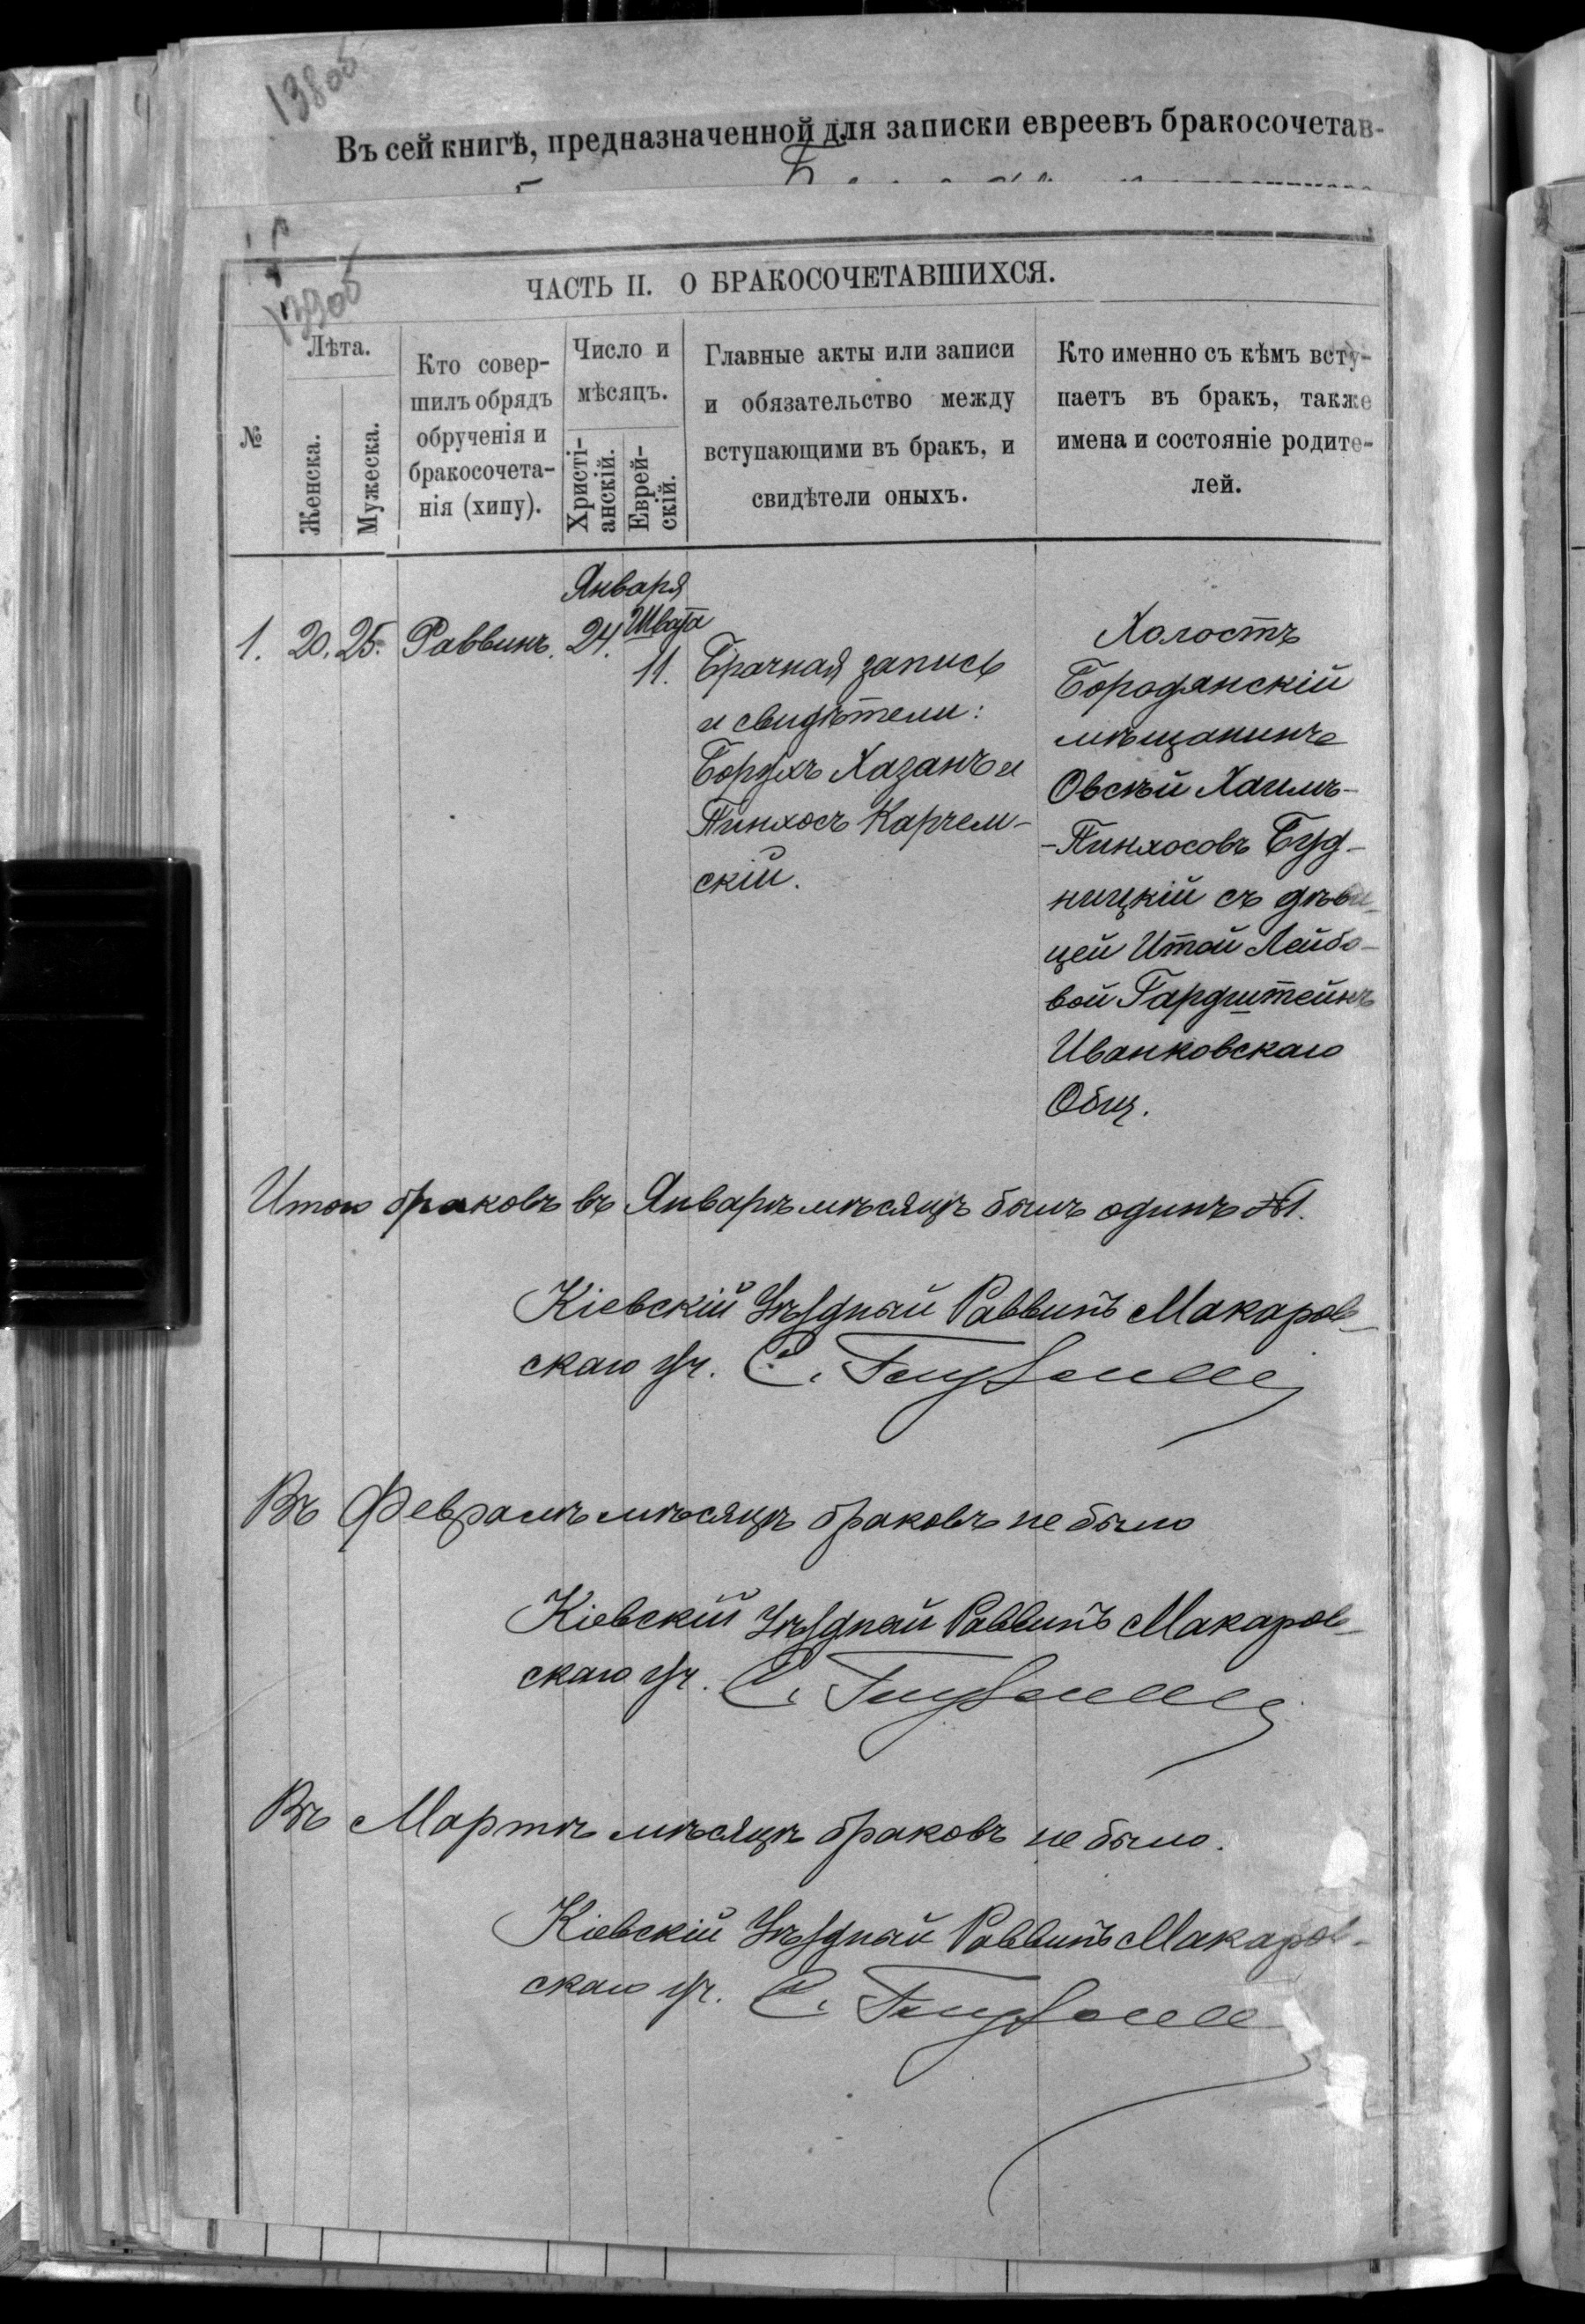 138об
Въ сей книгѣ, предназначенной для записки евреевъ бракосочетав-
139об
ЧАСТЬ II. О БРАКОСОЧЕТАВШИХСЯ.
№
Лѣта.
Женска.
Мужеска.
Кто совер-
шилъ обрядъ
обрученія и
бракосочета-
нія (хипу).
Число и
мѣсяцъ.
Христі-
анскій.
Еврей-
скій.
Главные акты или записи
и обязательство между
вступающими въ бракъ, и
свидѣтели оныхъ.
Кто именно съ кѣмъ всту-
паетъ въ бракъ, также
имена и состояніе родите-
лей.
Января
1. 20. 25. Раввинъ. 24. Швата
11.
Брачная запись
и свидѣтели:
Борухъ Хазанъ и
Пинхосъ Карчем-
скій.
Холостъ
Бородянскій
мѣщанинъ
Овсѣй Хаимъ-
-Пинхосовъ Буд-
ницкій съ дѣви-
цей Итой Лейбо-
вой Гардштейнъ
Иванковскаго
Общ.
Итого браковъ въ Январѣ мѣсяцѣ былъ одинъ №1.
Кіевскій Уѣздный Раввинъ Макаров-
скаго уч. С.
Въ Февралѣ мѣсяцѣ браковъ не было
Кіевскій Уѣздный Раввинъ Макаров-
скаго уч. С.
Въ Мартѣ мѣсяцѣ браковъ не было.
Кіевскій Уѣздный Раввинъ Макаров-
скаго уч. С.